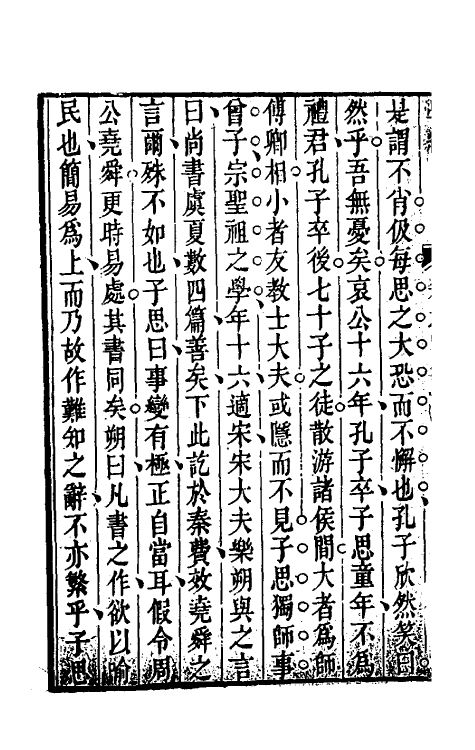 是謂不肖伋每思之大恐而不懈也孔子欣然笑曰
然乎吾無憂矣哀公十六年孔子卒子思童年不爲
禮君孔子卒後七十子之徒散游諸侯間大者爲師
傅卿相小者友教士大夫或隱而不見子思獨師事
曾子宗聖祖之學年十六適宋宋大夫樂朔與之言
曰尚書虞夏數四篇善矣下此訖於秦費效堯舜之
言爾殊不如也子思曰事變有極正自當耳假令周
公堯舜更時易處其書同矣朔曰凡書之作欲以喻
民也簡易爲上而乃故作難知之辭不亦繁乎子思